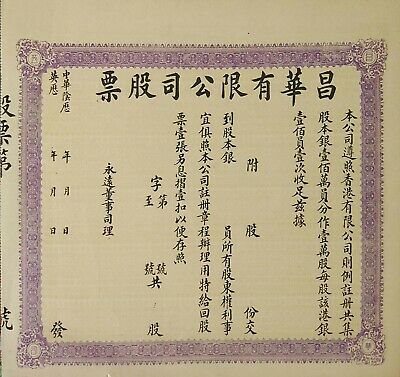 昌華有限公司股票
本公司遵照香港有限公司則例註冊共集
股本銀壹佰萬員分作壹萬股每股該港銀
壹佰員壹次收足茲據
附股份交
到股本銀 員所有股東權利事
宜俱照本公司註冊章程辦理用特給回股
票壹張另息摺壹扣以便存照
字第 號共 股
至 號
永遠董事司理
中華陰歷 年 月 日
英歷 年 月 日 發
股票第 號